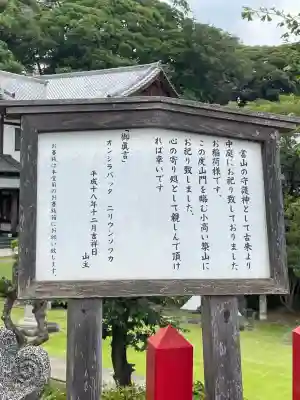 当山の守護神として古来より
中庭にお祀り致しておりました
お稲荷様です。
この度山門を臨む小高い築山に
お祀り致しました、
心の寄り処として親しんで頂け
れば幸いです
（御真言）
オンシラバッタ　ニリウンソワカ
平成十八年十二月吉祥日
山主
お賽銭は本堂前のお賽銭箱にお願い致します。